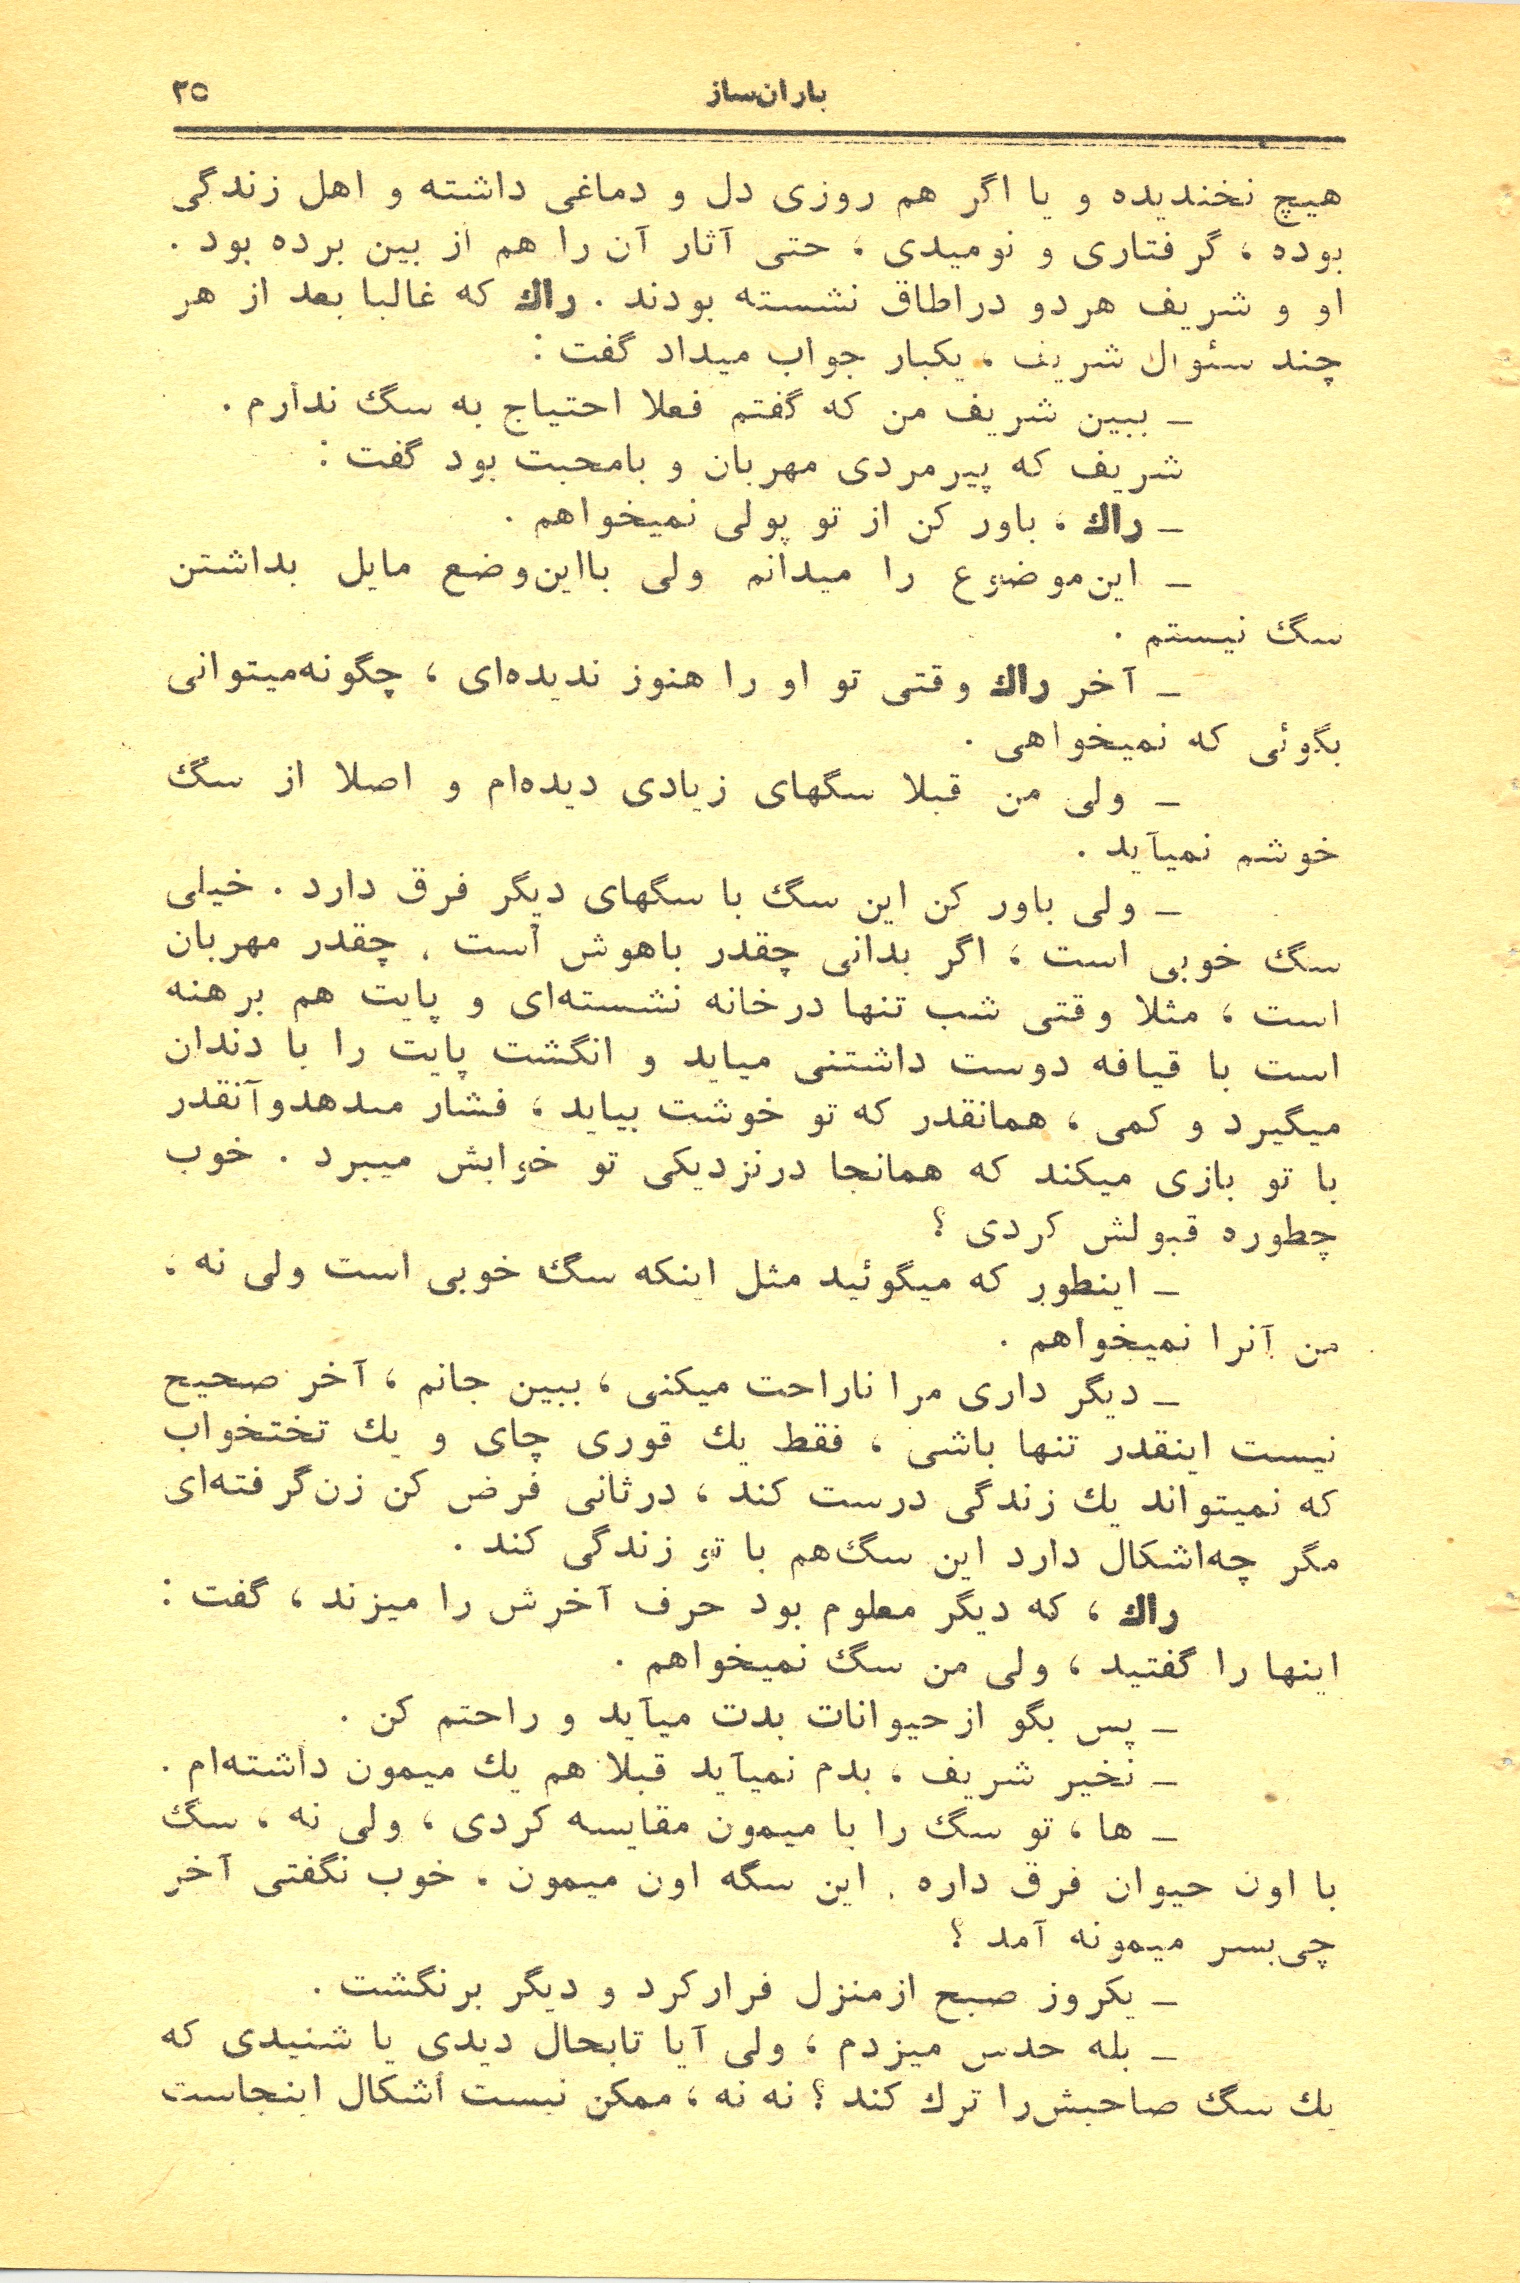 باران‌ساز ۲۵
هیچ نخندیده و یا اگر هم روزی دل و دماغی داشته و اهل زندگی
بوده ، گرفتاری و نومیدی ، حتی آثار آن را هم از بین برده بود .
او و شریف هردو دراطاق نشسته بودند . راك که غالبا بعد از هر
چند سئوال شریف ، یکبار جواب میداد گفت :
ـ ببین شریف من که گفتم فعلا احتیاج به سگ ندارم .
شریف که پیرمردی مهربان و بامحبت بود گفت :
ـ راك ، باور کن از تو پولی نمیخواهم .
ـ این‌موضوع را میدانم ولی بااین‌وضع مایل بداشتن
سگ نیستم .
ـ آخر راك وقتی تو او را هنوز ندیده‌ای ، چگونه‌میتوانی
بگوئی که نمیخواهی .
ـ ولی من قبلا سگهای زیادی دیده‌ام و اصلا از سگ
خوشم نمیآید .
ـ ولی باور کن این سگ با سگهای دیگر فرق دارد . خیلی
سگ خوبی است ، اگر بدانی چقدر باهوش است . چقدر مهربان
است ، مثلا وقتی شب تنها درخانه نشسته‌ای و پایت هم برهنه
است با قیافه دوست داشتنی میاید و انگشت پایت را با دندان
میگیرد و کمی ، همانقدر که تو خوشت بیاید ، فشار میدهدوآنقدر
با تو بازی میکند که همانجا درنزدیکی تو خوابش میبرد . خوب
چطوره قبولش کردی ؟
ـ اینطور که میگوئید مثل اینکه سگ خوبی است ولی نه ،
من آنرا نمیخواهم .
ـ دیگر داری مرا ناراحت میکنی ، ببین جانم ، آخر صحیح
نیست اینقدر تنها باشی ، فقط یك قوری چای و یك تختخواب
که نمیتواند یك زندگی درست کند ، درثانی فرض کن زن‌گرفته‌ای
مگر چه‌اشکال دارد این سگ‌هم با تو زندگی کند .
راك ، که دیگر معلوم بود حرف آخرش را میزند ، گفت :
اینها را گفتید ، ولی من سگ نمیخواهم .
ـ پس بگو ازحیوانات بدت میآید و راحتم کن .
ـ نخیر شریف ، بدم نمیآید قبلا هم یك میمون داشته‌ام .
ـ ها ، تو سگ را با میمون مقایسه کردی ، ولی نه ، سگ
با اون حیوان فرق داره . این سگه اون میمون . خوب نگفتی آخر
چی‌بسر میمونه آمد ؟
ـ یکروز صبح ازمنزل فرارکرد و دیگر برنگشت .
ـ بله حدس میزدم ، ولی آیا تابحال دیدی یا شنیدی که
یك سگ صاحبش‌را ترك کند ؟ نه نه ، ممکن نیست اشکال اینجاست